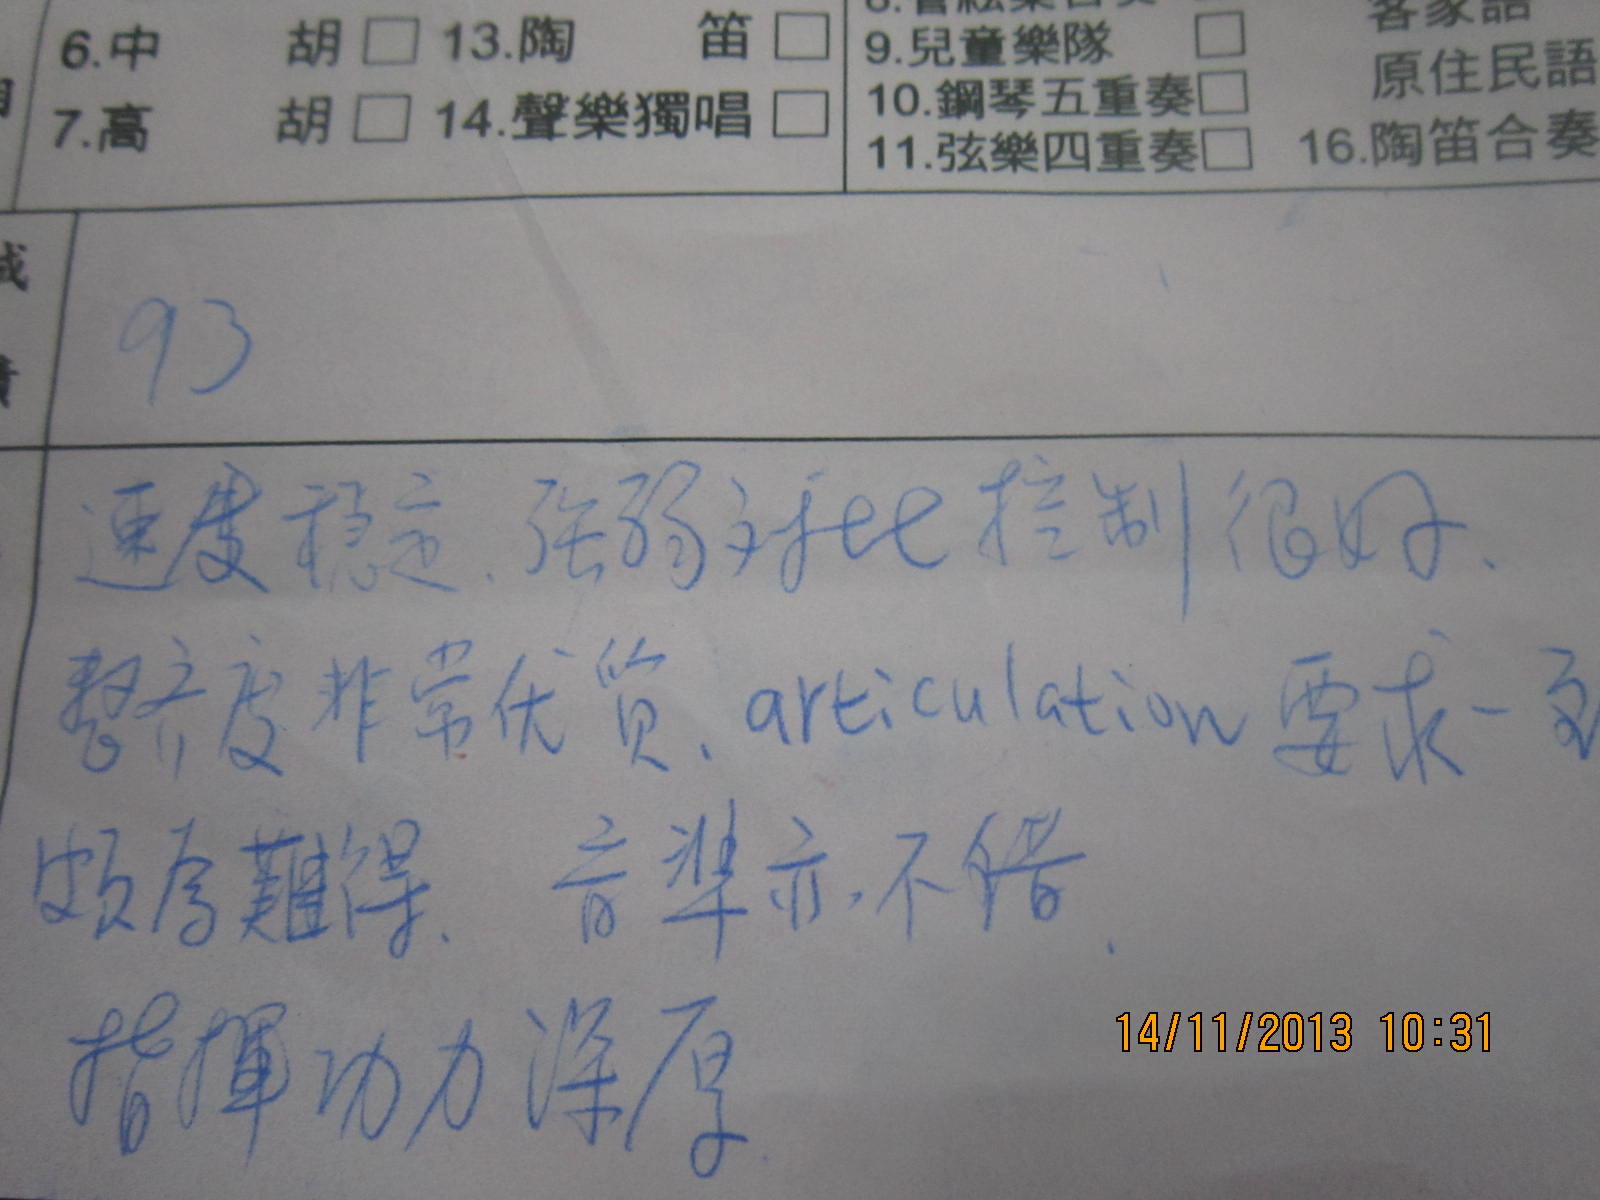 客家語
6.中 胡□ 13.陶 笛□ 9.兒童樂隊 □ 原住民語
7.高 胡□ 14.聲樂獨唱□ 10.鋼琴五重奏□
11.弦樂四重奏□ 16.陶笛合奏
93
速度穩定、强弱对比控制很好、
整齐度非常优質、articulation要求一致
頗為難得. 音準亦不錯.
指揮功力深厚.
14/11/2013 10:31